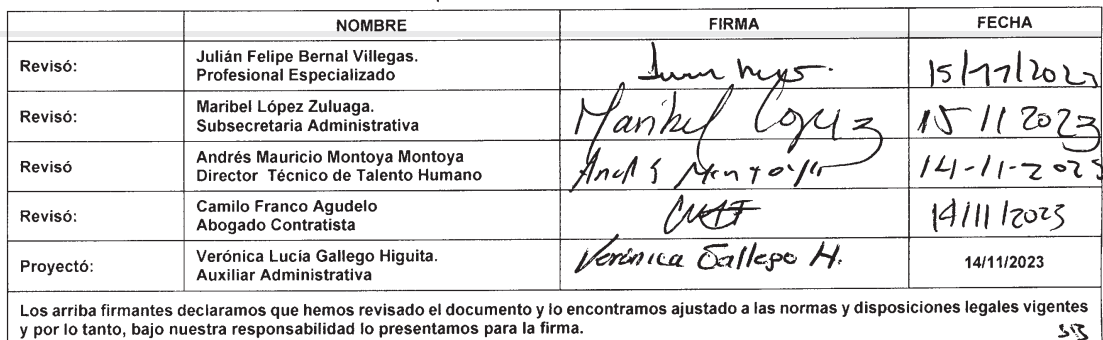 NOMBRE FIRMA FECHA
Revisó: Julián Felipe Bernal Villegas.
Profesional Especializado 15/11/2023
Revisó: Maribel López Zuluaga.
Subsecretaria Administrativa Maribel López 15 11 2023
Revisó Andrés Mauricio Montoya Montoya
Director Técnico de Talento Humano Andrés Montoya 14-11-2023
Revisó: Camilo Franco Agudelo
Abogado Contratista 14/11/2023
Proyectó: Verónica Lucía Gallego Higuita.
Auxiliar Administrativa Verónica Gallego H. 14/11/2023
Los arriba firmantes declaramos que hemos revisado el documento y lo encontramos ajustado a las normas y disposiciones legales vigentes
y por lo tanto, bajo nuestra responsabilidad lo presentamos para la firma.